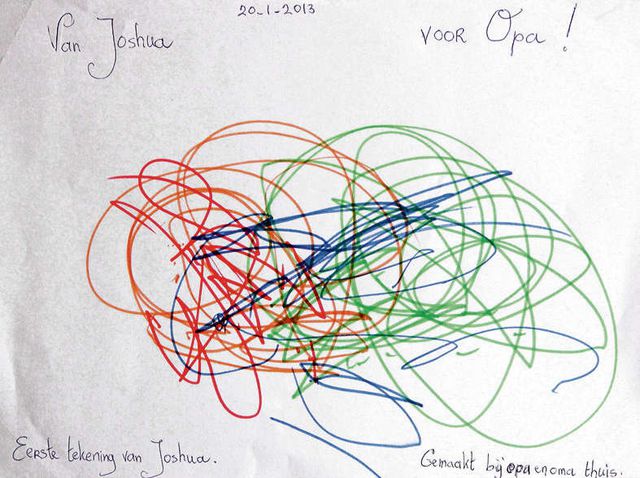 Van Joshua
20-1-2013
voor Opa !
Eerste tekening van Joshua.
Gemaakt bij opa en oma thuis.